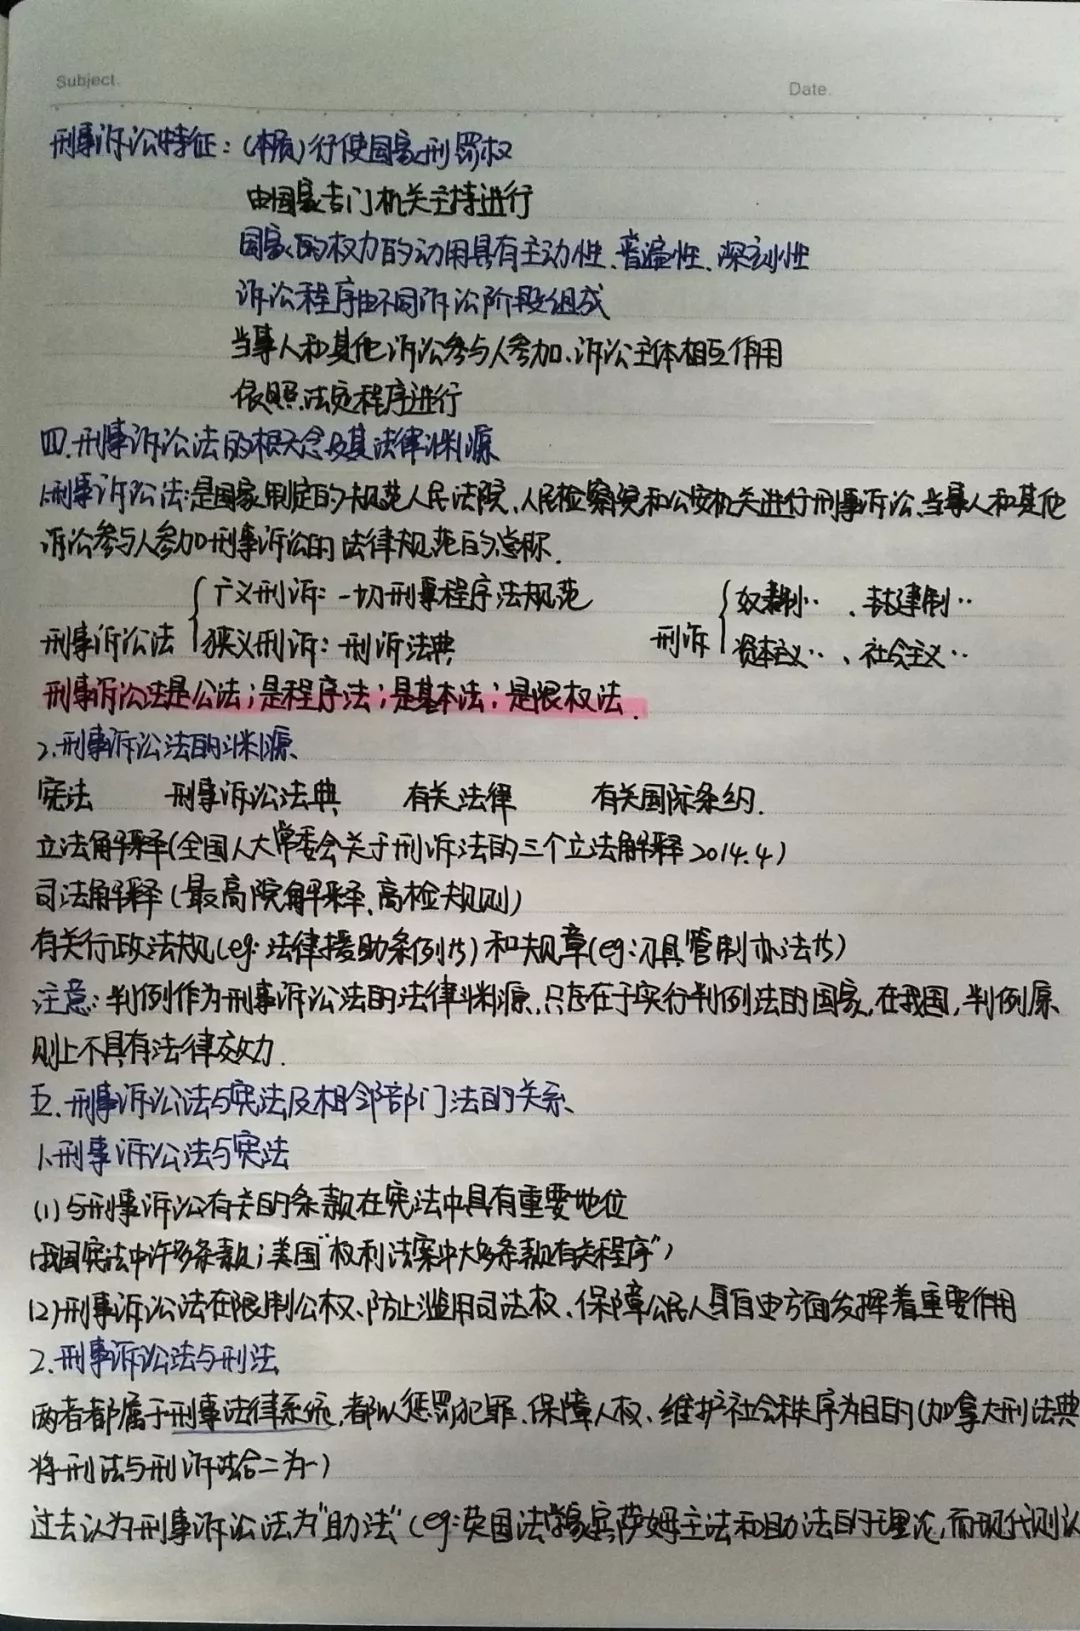 Subject.
Date.
刑事诉讼特征：(本质)行使国家刑罚权
由国家专门机关主持进行
国家的权力的动用具有主动性、普遍性、深刻性
诉讼程序由不同诉讼阶段组成
当事人和其他诉讼参与人参加、诉讼主体相互作用
依照法定程序进行
四.刑事诉讼法的概念及其法律渊源
1.刑事诉讼法：是国家制定的规范人民法院、人民检察院和公安机关进行刑事诉讼、当事人和其他
诉讼参与人参加刑事诉讼的法律规范的总称.
刑事诉讼法 { 广义刑诉：一切刑事程序法规范
狭义刑诉：刑诉法典
刑诉 { 奴隶制‥、封建制‥
资本主义‥、社会主义‥
刑事诉讼法是公法；是程序法；是基本法；是限权法.
2.刑事诉讼法的渊源、
宪法 刑事诉讼法典 有关法律 有关国际条约.
立法解释(全国人大常委会关于刑诉法的三个立法解释2014.4)
司法解释(最高院解释、高检规则)
有关行政法规(eg:法律援助条例75)和规章(eg:刀具管制办法75)
注意：判例作为刑事诉讼法的法律渊源,只存在于实行判例法的国家,在我国,判例原
则上不具有法律效力.
五.刑事诉讼法与宪法及相邻部门法的关系、
1.刑事诉讼法与宪法
(1)与刑事诉讼有关的条款在宪法中具有重要地位
(我国宪法中许多条款；美国"权利法案中大多条款有关程序")
(2)刑事诉讼法在限制公权、防止滥用司法权、保障公民人身自由方面发挥着重要作用
2.刑事诉讼法与刑法
两者都属于刑事法律系统,都以惩罚犯罪、保障人权、维护社会秩序为目的(加拿大刑法典
将刑法与刑诉法合二为一)
过去认为刑事诉讼法为"助法"(eg:英国法学家宾萨姆主法和助法的理论,而现代则认